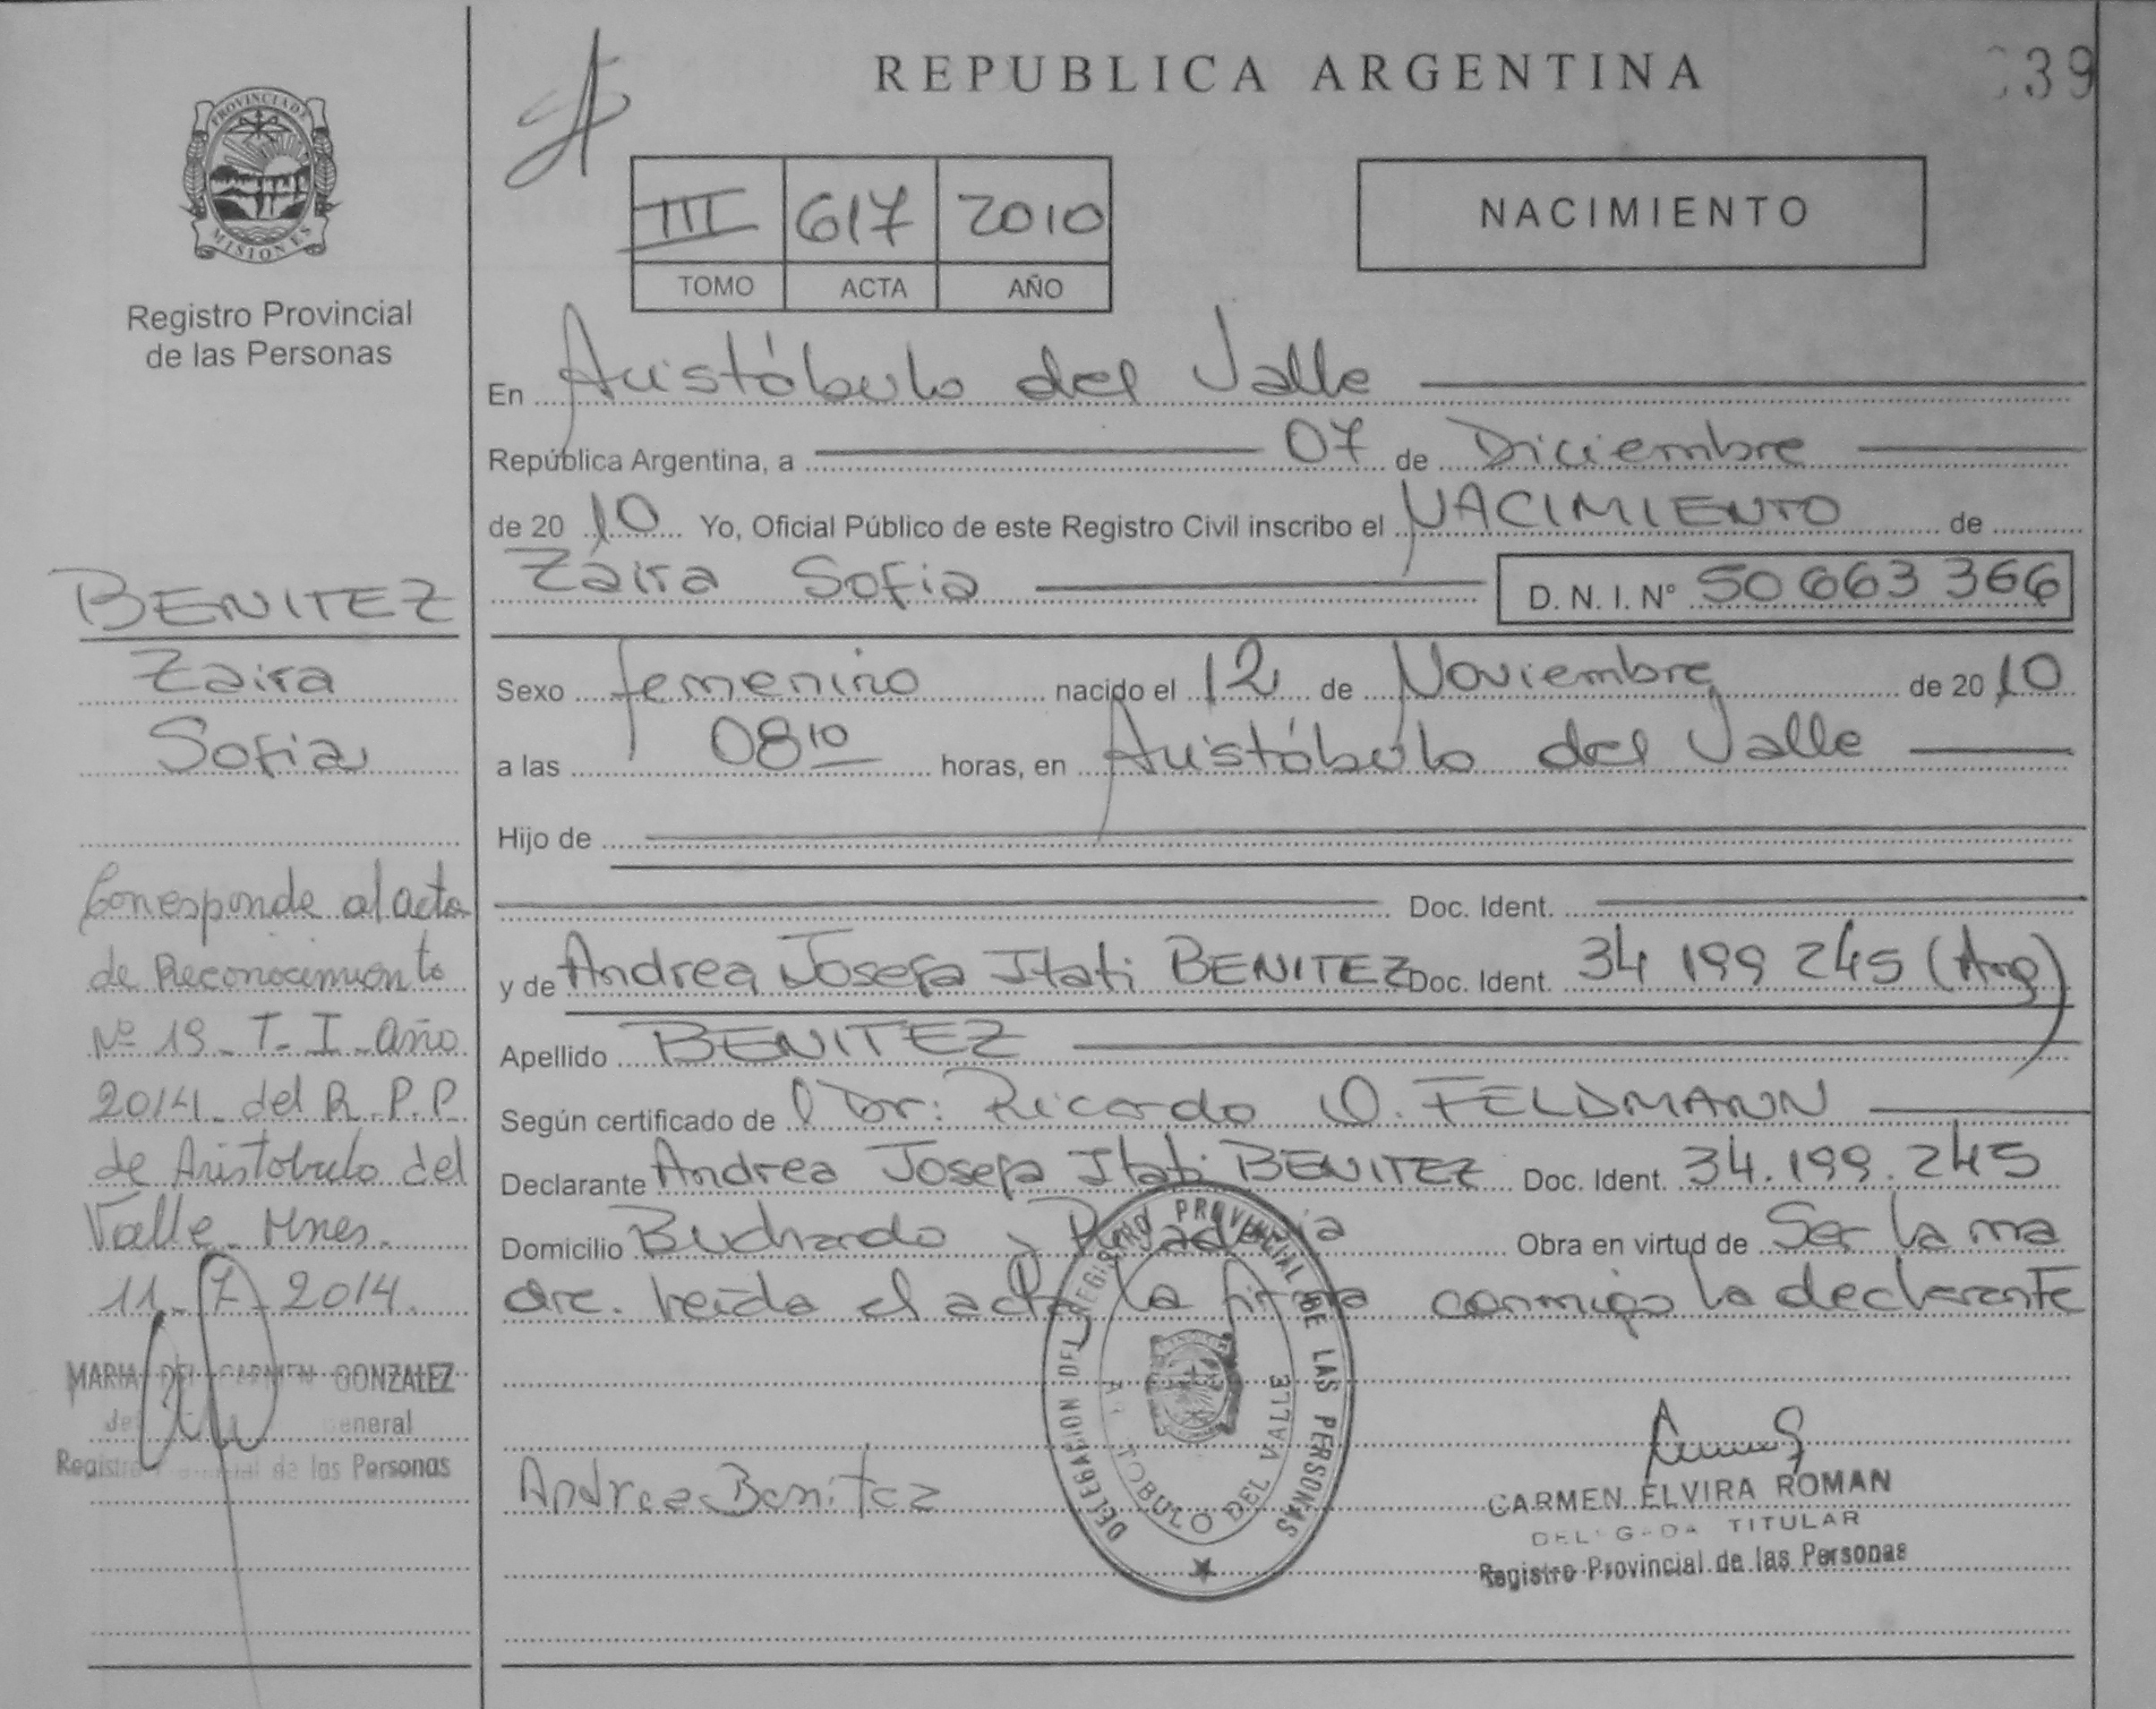 REPUBLICA ARGENTINA
39
PROVINCIA DE
MISIONES
Registro Provincial
de las Personas
III 617 2010
TOMO ACTA AÑO
NACIMIENTO
En Aristóbulo del Valle
República Argentina, a 07 de Diciembre
de 2010 Yo, Oficial Público de este Registro Civil inscribo el NACIMIENTO de
Zaira Sofia D. N. I. N° 50 663 366
Sexo femenino nacido el 12 de Noviembre de 2010
a las 08 10 horas, en Aristóbulo del Valle
Hijo de
Doc. Ident.
y de Andrea Josefa Itati BENITEZ Doc. Ident. 34 199 245 (Arg)
Apellido BENITEZ
Según certificado de Dr: Ricardo O. FELDMANN
Declarante Andrea Josefa Itati BENITEZ Doc. Ident. 34.199.245
Domicilio y Obra en virtud de Ser la ma
dre. Leída el acta la firma conmigo la declarante
Andrea Benitez
DELEGACION DEL REGISTRO PROVINCIAL DE LAS PERSONAS
TOBULO DEL VALLE
CARMEN ELVIRA ROMAN
TITULAR
Registro Provincial de las Personas
BENITEZ
Zaira
Sofia
Corresponde al acta
de Reconocimiento
Nº 19 T- I- año
2014 del R.P.P.
de Aristobulo del
Valle Mnes.
11-7-2014
MARIA DEL CARMEN GONZALEZ
eneral
Registro de las Personas